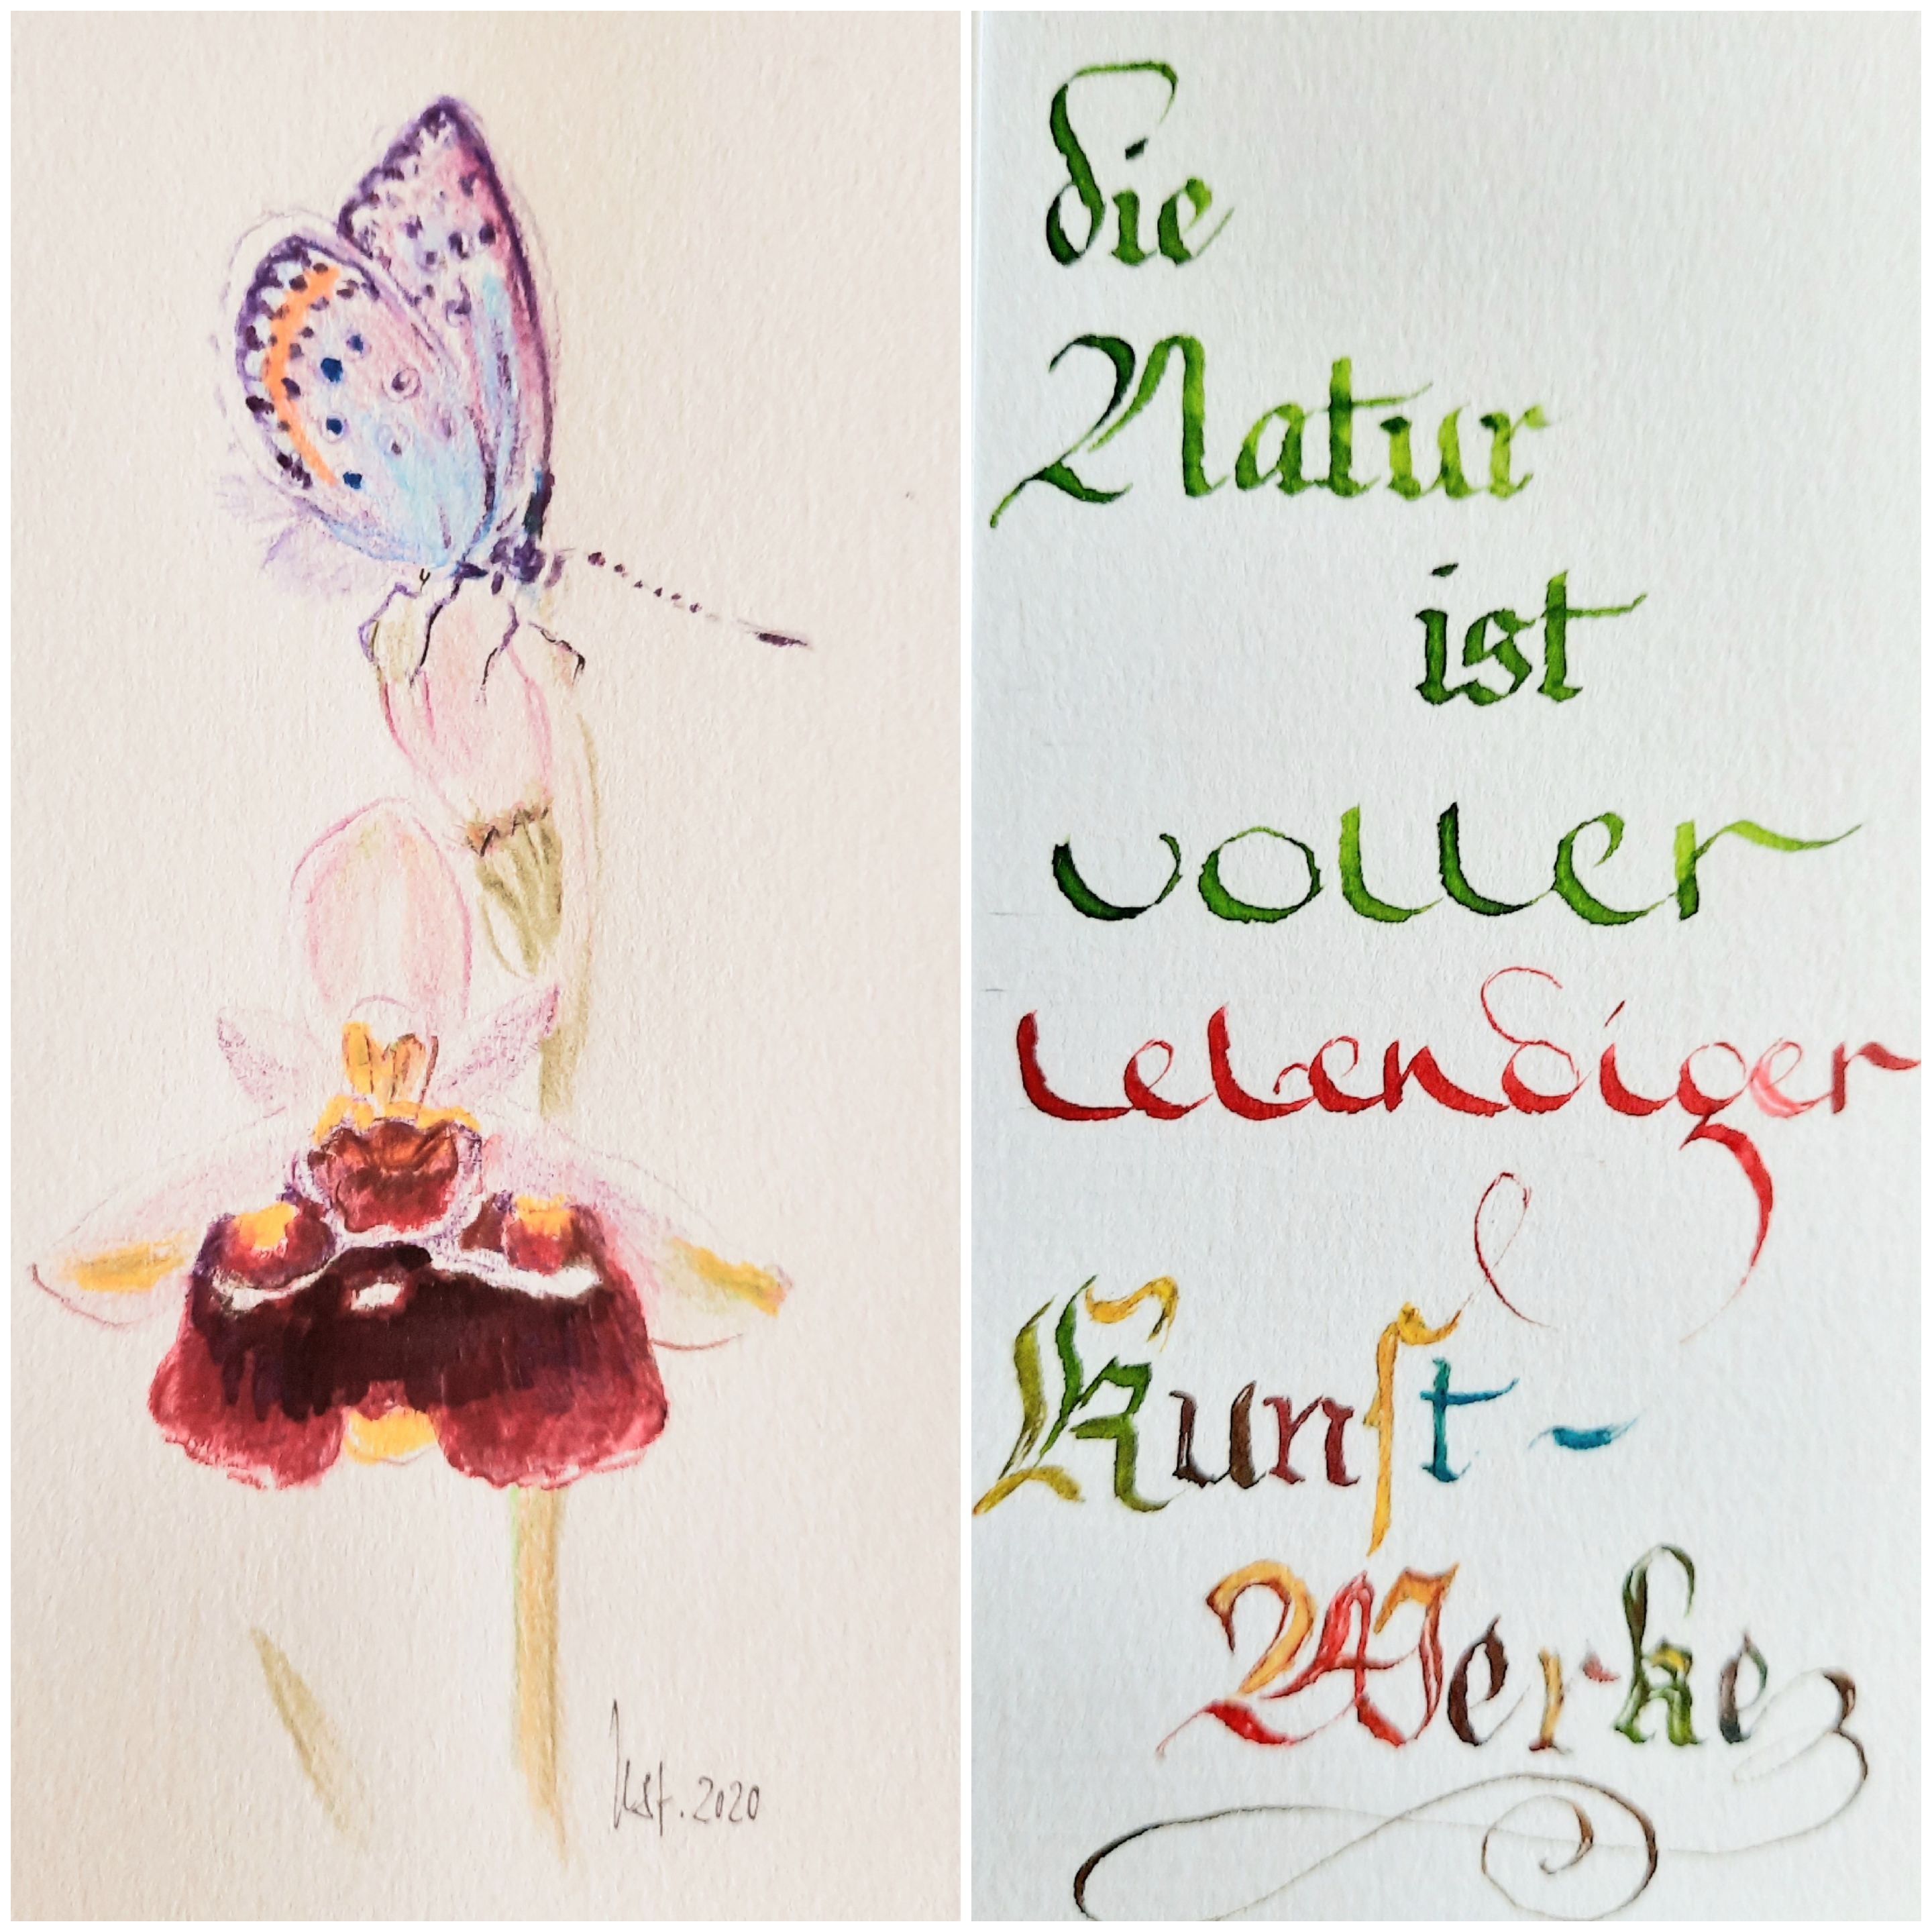 die
Natur
ist
voller
lebendiger
Kunst-
Werke
2020